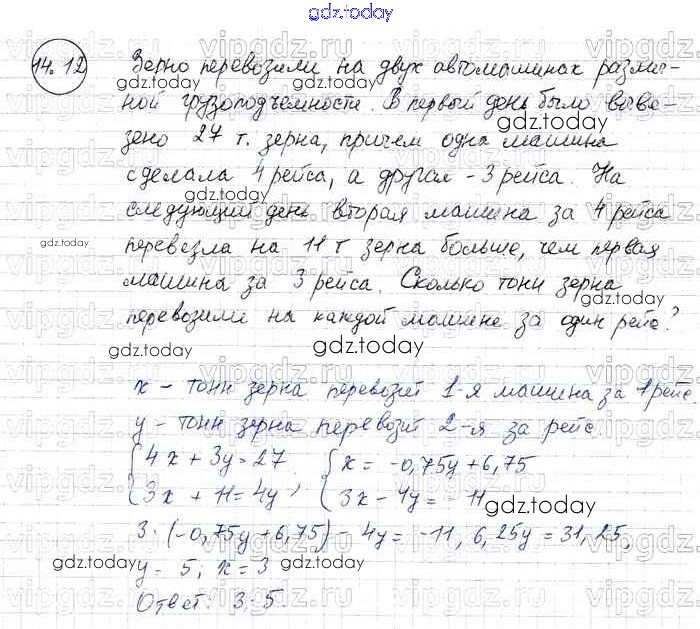 gdz.today
14.12 Зерно перевозили на двух автомашинах различ-
ной грузоподъемности. В первый день было выве-
зено 27 т. зерна, причем одна машина
сделала 4 рейса, а другая - 3 рейса. На
следующий день вторая машина за 4 рейса
перевезла на 11 т зерна больше, чем первая
машина за 3 рейса. Сколько тонн зерна
перевозили на каждой машине за один рейс?
x - тонн зерна перевозит 1-я машина за 1 рейс
y - тонн зерна перевозит 2-я за рейс.
{4x + 3y = 27 {x = -0,75y + 6,75
{3x + 11 = 4y ; {3x - 4y = -11
3·(-0,75y + 6,75) - 4y = -11; 6,25y = 31,25,
y = 5; x = 3
Ответ: 3; 5.